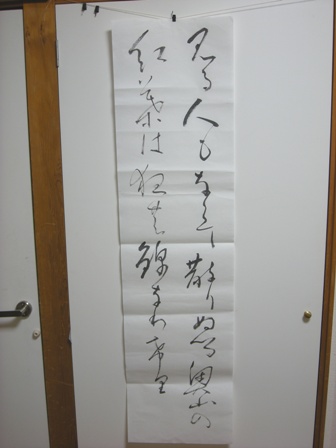 見る人もなくて散りぬる奥山の
紅葉は夜の錦なりけり